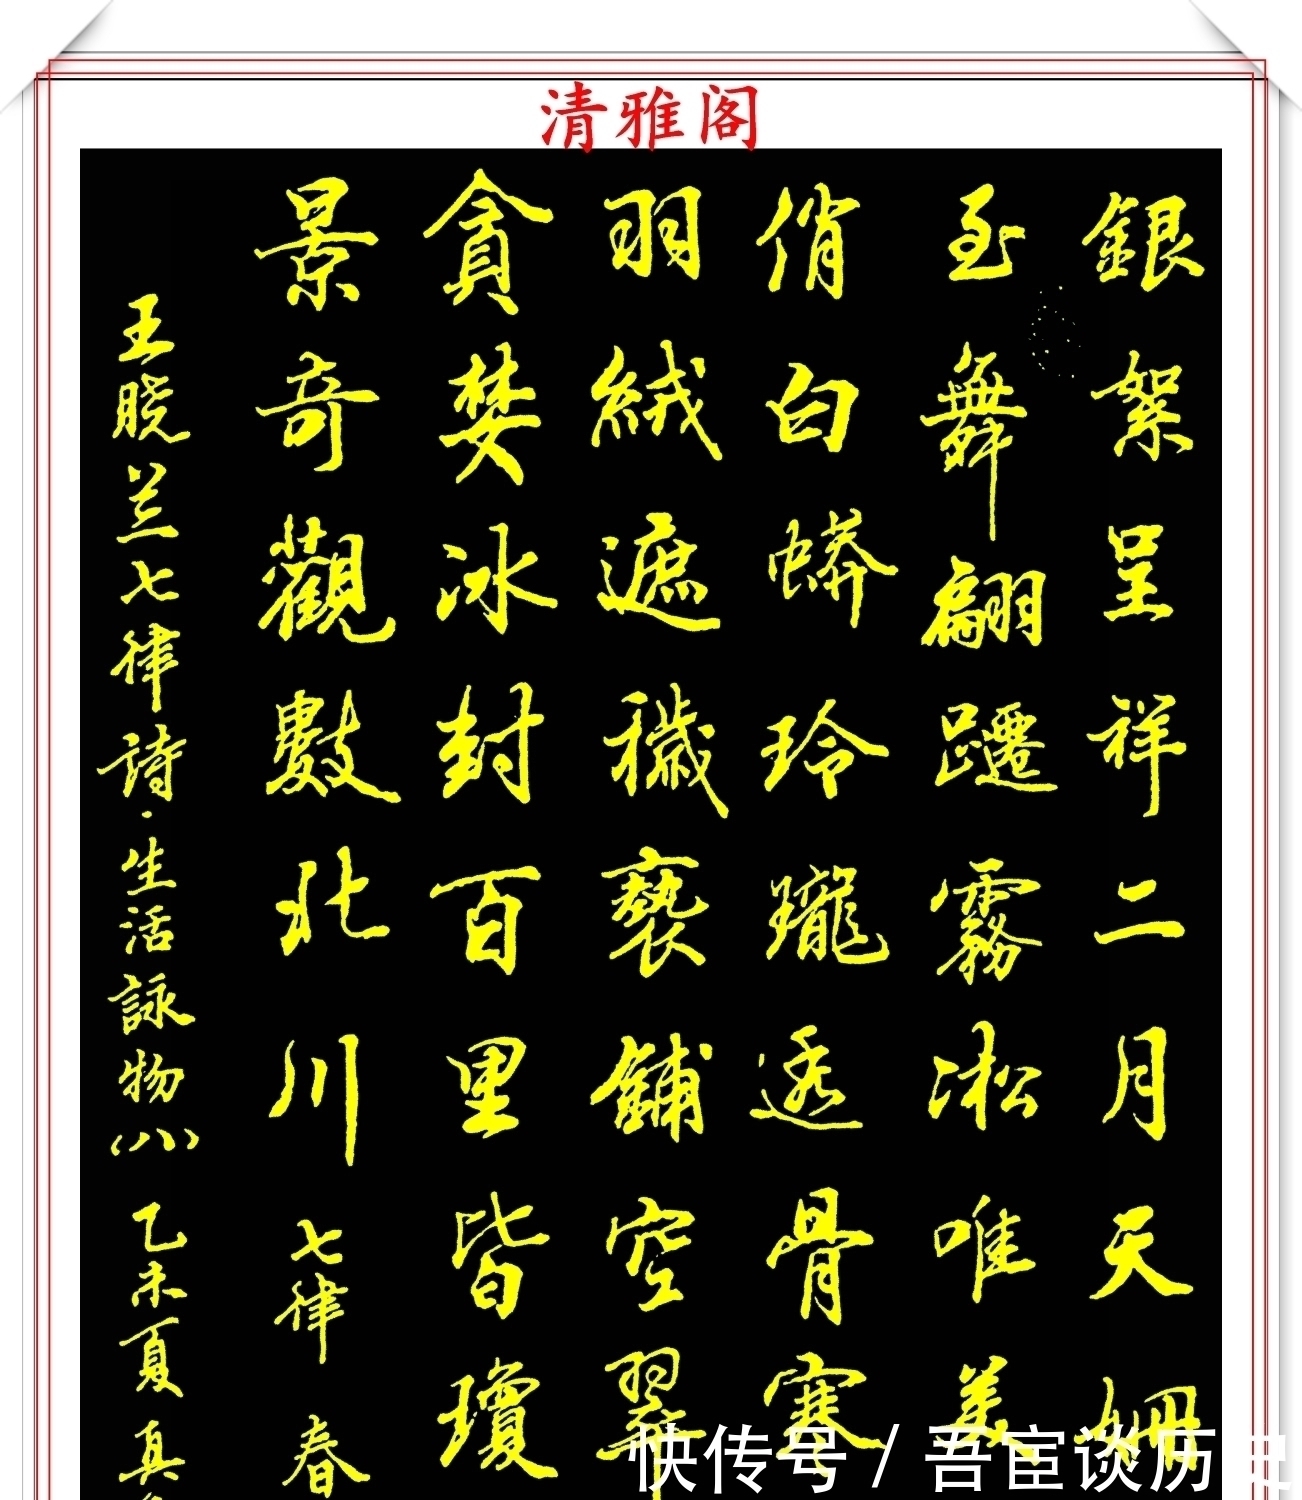 清雅阁
銀絮呈祥二月天姍
玉舞翩躚霧凇唯美
俏白蟒玲瓏透骨寒
羽絨遮穢褻鋪空翠
貪婪冰封百里皆瓊
景奇觀數北川 七律 春
王晓兰七律詩·生活詠物(八) 乙未夏真
快传号 / 吾宦谈历史